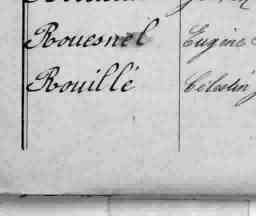 Rouesnel Eugène
Rouillé Célestin